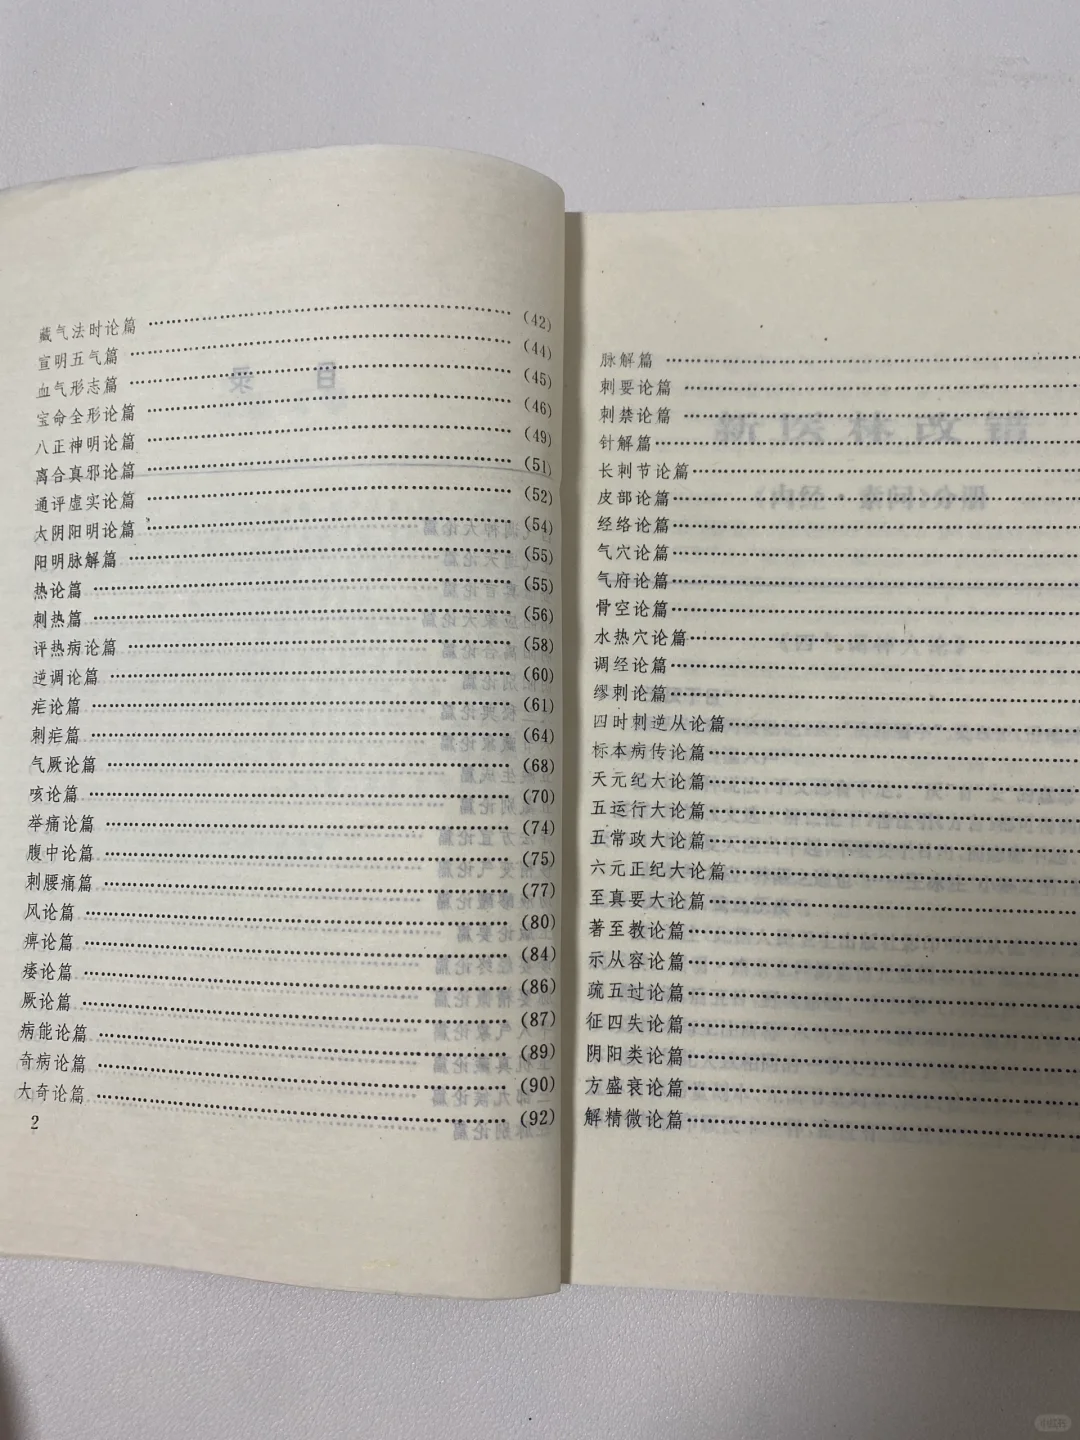 藏气法时论篇 ……………………………… (42)
宣明五气篇 ……………………………… (44)
血气形志篇 ……………………………… (45)
宝命全形论篇 ……………………………… (46)
八正神明论篇 ……………………………… (49)
离合真邪论篇 ……………………………… (51)
通评虚实论篇 ……………………………… (52)
太阴阳明论篇 ……………………………… (54)
阳明脉解篇 ……………………………… (55)
热论篇 ……………………………… (55)
刺热篇 ……………………………… (56)
评热病论篇 ……………………………… (58)
逆调论篇 ……………………………… (60)
疟论篇 ……………………………… (61)
刺疟篇 ……………………………… (64)
气厥论篇 ……………………………… (68)
咳论篇 ……………………………… (70)
举痛论篇 ……………………………… (74)
腹中论篇 ……………………………… (75)
刺腰痛篇 ……………………………… (77)
风论篇 ……………………………… (80)
痹论篇 ……………………………… (84)
痿论篇 ……………………………… (86)
厥论篇 ……………………………… (87)
病能论篇 ……………………………… (89)
奇病论篇 ……………………………… (90)
大奇论篇 ……………………………… (92)
2
脉解篇 ………………………………
刺要论篇 ………………………………
刺禁论篇 ………………………………
针解篇 ………………………………
长刺节论篇 ………………………………
皮部论篇 ………………………………
经络论篇 ………………………………
气穴论篇 ………………………………
气府论篇 ………………………………
骨空论篇 ………………………………
水热穴论篇 ………………………………
调经论篇 ………………………………
缪刺论篇 ………………………………
四时刺逆从论篇 ………………………………
标本病传论篇 ………………………………
天元纪大论篇 ………………………………
五运行大论篇 ………………………………
五常政大论篇 ………………………………
六元正纪大论篇 ………………………………
至真要大论篇 ………………………………
著至教论篇 ………………………………
示从容论篇 ………………………………
疏五过论篇 ………………………………
征四失论篇 ………………………………
阴阳类论篇 ………………………………
方盛衰论篇 ………………………………
解精微论篇 ………………………………
小红书